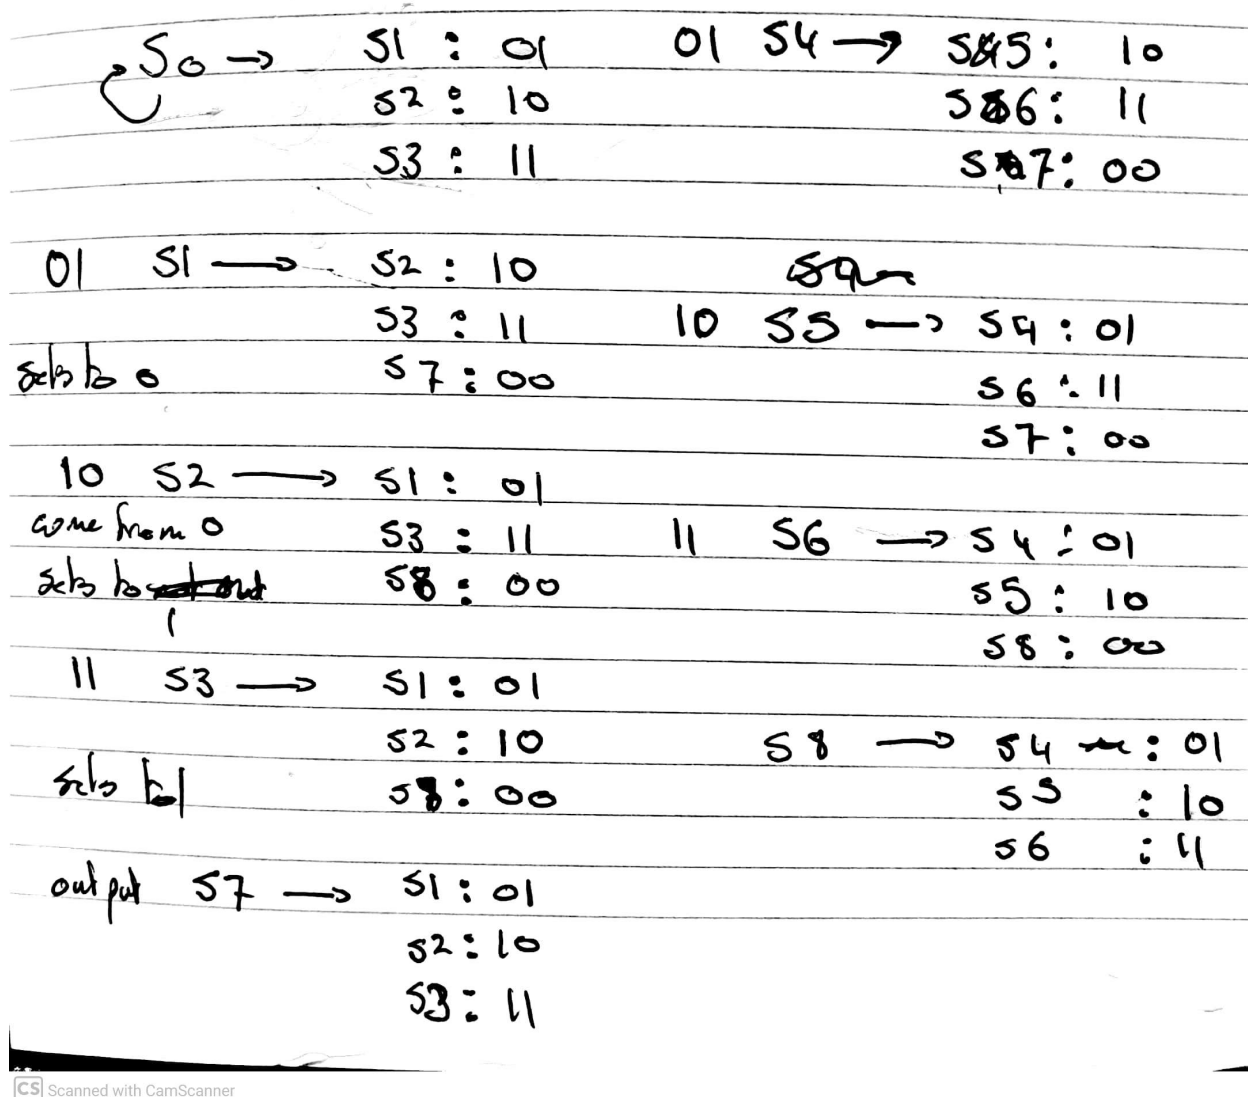 S0 → S1 : 01
S2 : 10
S3 : 11
01 S1 → S2 : 10
S3 : 11
sets to 0 S7 : 00
10 S2 → S1 : 01
come from 0 S3 : 11
sets to S8 : 00
1
11 S3 → S1 : 01
S2 : 10
sets to 1 S8 : 00
output S7 → S1 : 01
S2 : 10
S3 : 11
01 S4 → S5 : 10
S6 : 11
S7 : 00
10 S5 → S4 : 01
S6 : 11
S7 : 00
11 S6 → S4 : 01
S5 : 10
S8 : 00
S8 → S4 : 01
S5 : 10
S6 : 11
CS Scanned with CamScanner